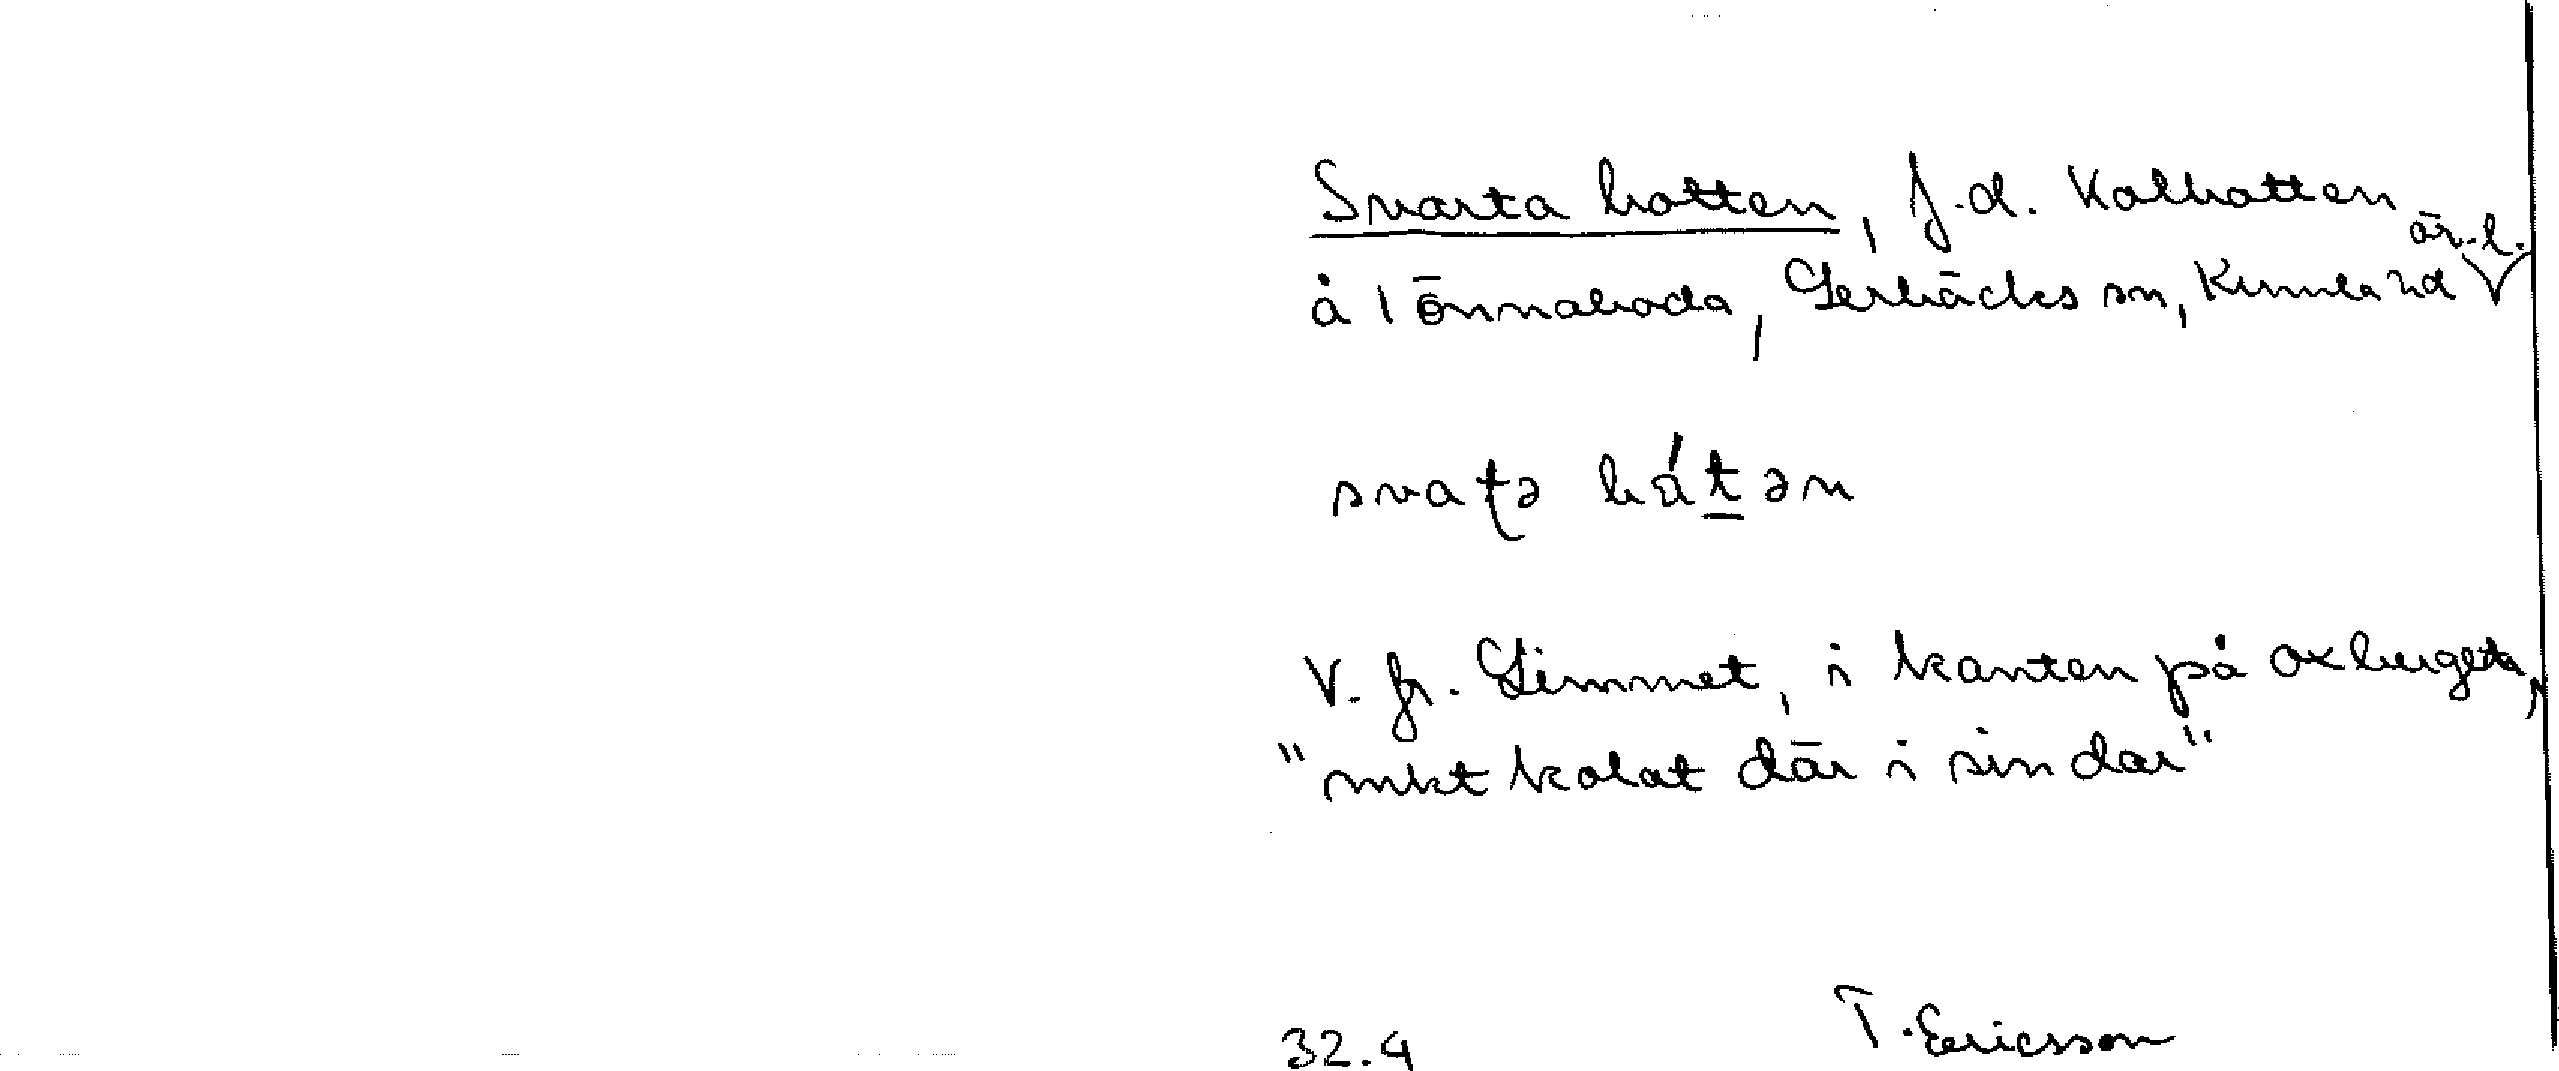 Svarta botten, f.d. Kolbotten
å Lönnaboda, Lerbäcks sn, Kumla hd ör.l.
svaʈə bát̲ən
V. fr. Limmet, i kanten på oxbergeta,
"mkt kolat där i sindar"
32.4 T. Ericsson